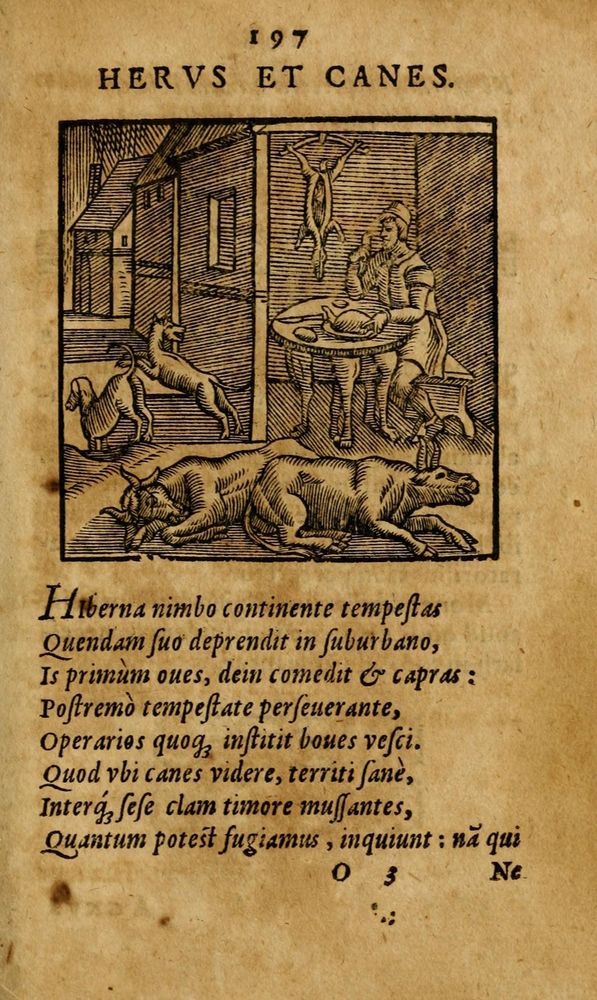 197
HERVS ET CANES.
Hiberna nimbo continente tempeſtas
Quendam ſuo deprendit in ſuburbano,
Is primùm oues, dein comedit & capras:
Poſtremò tempeſtate perſeuerante,
Operarios quoqꝫ inſtitit boues veſci.
Quod vbi canes videre, territi ſanè,
Interq́ꝫ ſeſe clam timore muſſantes,
Quantum poteſt fugiamus, inquiunt: nā qui
O 3 Ne